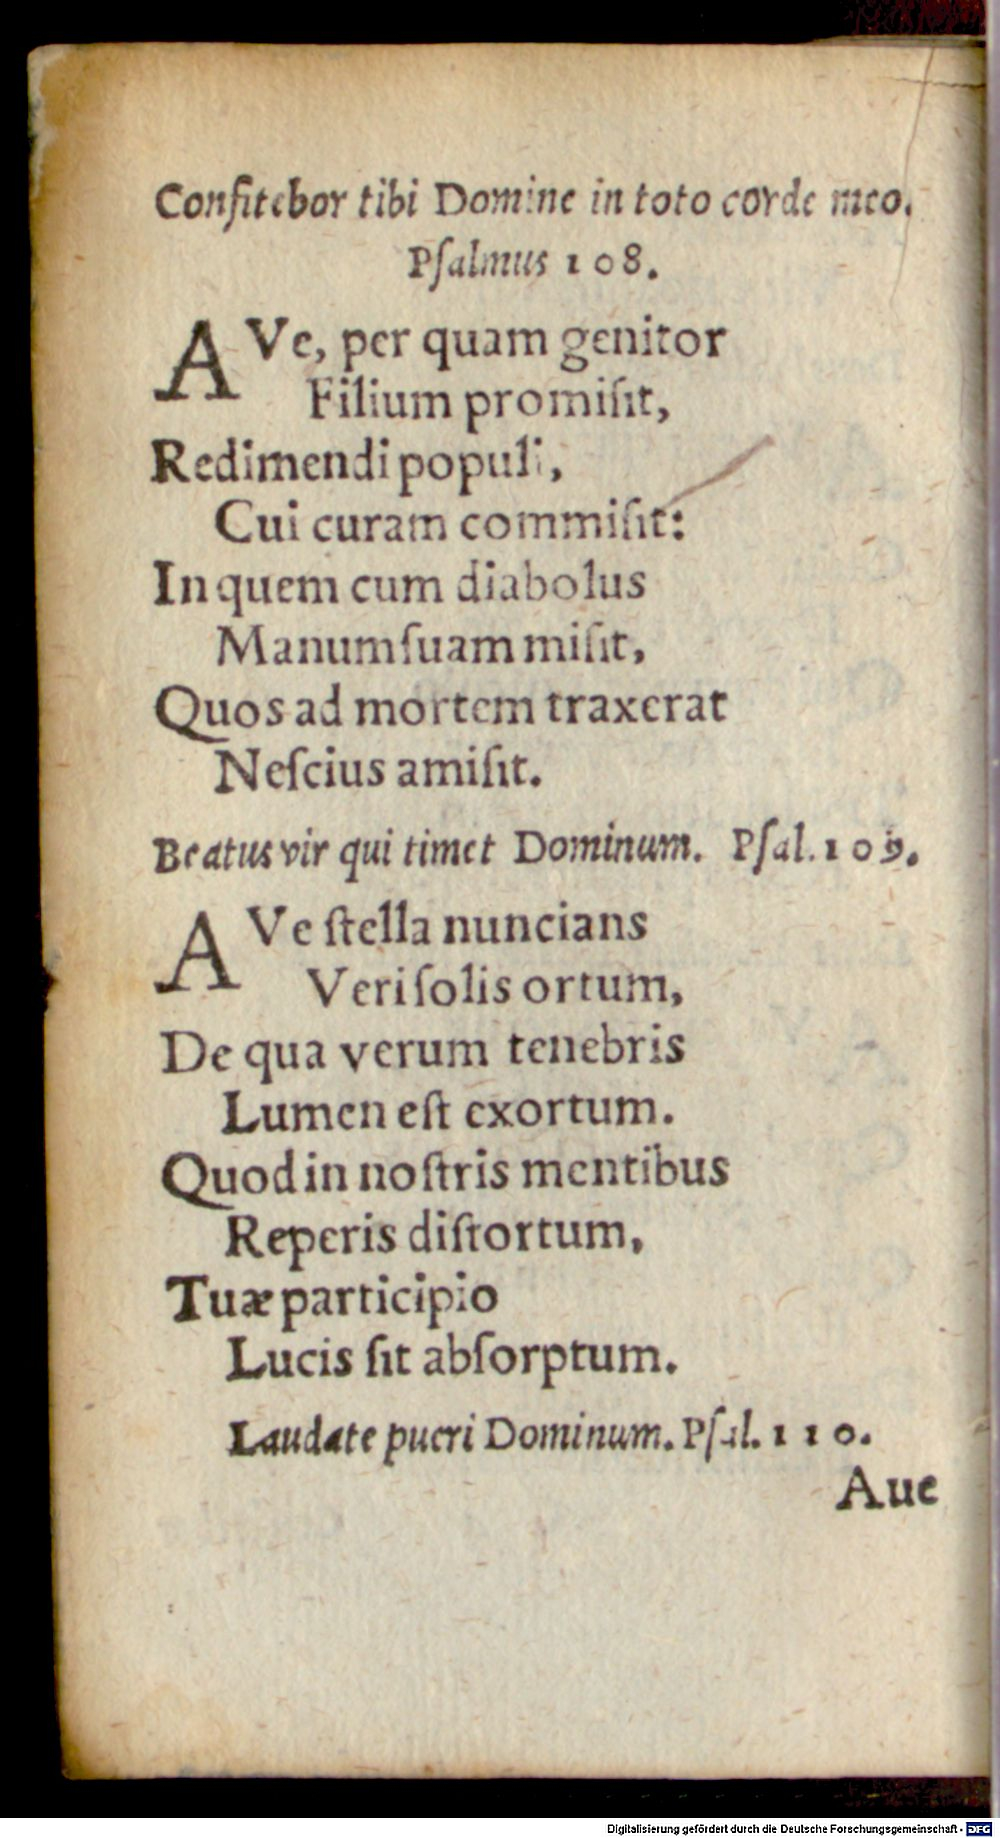 Confitebor tibi Domine in toto corde meo.
Pſalmus 108.
AVe, per quam genitor
Filium promiſit,
Redimendi populi,
Cui curam commiſit:
In quem cum diabolus
Manum ſuam miſit,
Quos ad mortem traxerat
Neſcius amiſit.
Beatus vir qui timet Dominum. Pſal. 109.
AVe ſtella nuncians
Veri ſolis ortum,
De qua verum tenebris
Lumen eſt exortum.
Quod in noſtris mentibus
Reperis diſtortum,
Tuæ participio
Lucis ſit abſorptum.
Laudate pueri Dominum. Pſal. 110.
Aue
Digitalisierung gefördert durch die Deutsche Forschungsgemeinschaft - DFG